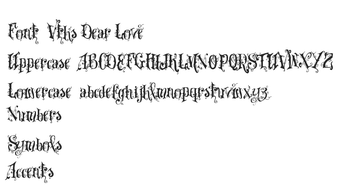 Font Vtks Dear Love
Uppercase ABCDEFGHIJKLMNOPQRSTUVWXYZ
Lowercase abcdefghijklmnopqrstuvwxyz
Numbers
Symbols
Accents